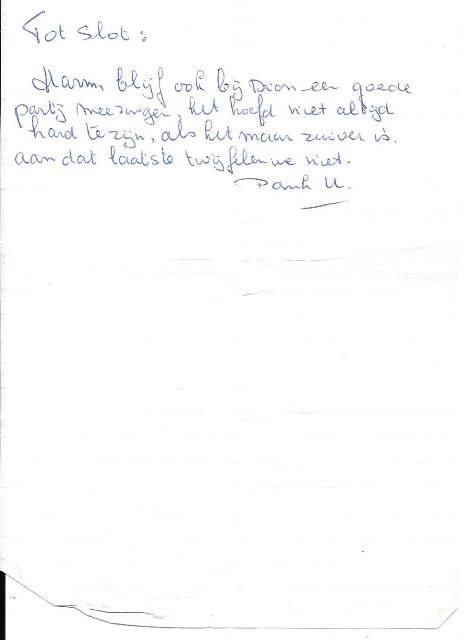 Tot slot:
Harm, blijf ook bij Dion een goede
partij meezingen, het hoefd niet altijd
hard te zijn, als het maar zuiver is.
aan dat laatste twijfelen we niet.
Dank U.